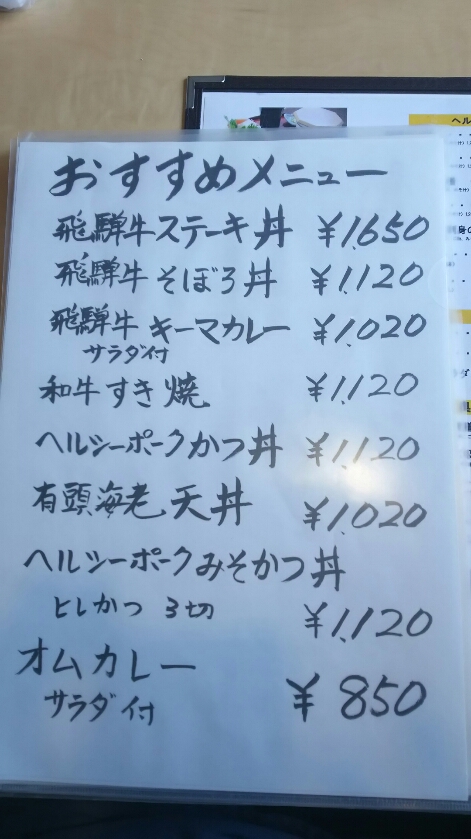 おすすめメニュー
飛騨牛ステーキ丼 ¥1,650
飛騨牛そぼろ丼 ¥1,120
飛騨牛キーマカレー ¥1,020
サラダ付
和牛すき焼 ¥1,120
ヘルシーポークかつ丼 ¥1,120
有頭海老天丼 ¥1,020
ヘルシーポークみそかつ丼
ヒレかつ 3切 ¥1,120
オムカレー
サラダ付 ¥850